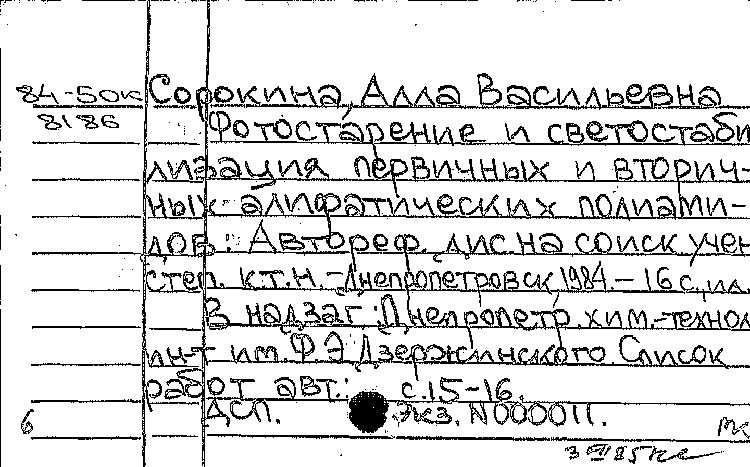 84-50к Сорокина, Алла Васильевна
8186 Фотостарение и светостаби
лизация первичных и вторич-
ных алифатических полиами-
дов: Автореф. дис. на соиск учен
степ. к.т.н. - Днепропетровск 1984. - 16 с., ил.
В надзаг: Днепропетр. хим.-технол
ин-т им. Ф Э Дзержинского Список
работ авт.: с. 15-16.
ДСП. Экз. N000011.
6